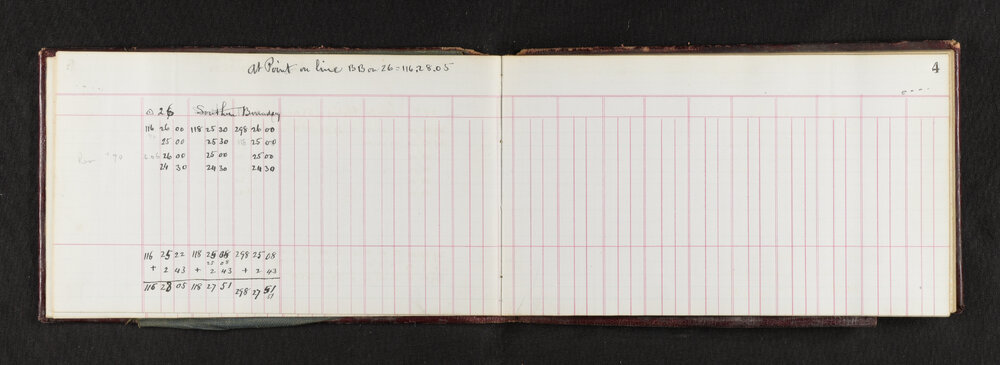 At Point on line B B on 26 = 116.28.05
4
⊙ 26 Southern Boundary
116 26 00 118 25 30 298 26 00
25 00 25 30 118 25 00
26 00 25 00 25 00
24 30 24 30 24 30
116 25 22 118 25 08 298 25 08
25 08
+ 2 43 + 2 43 + 2 43
116 28 05 118 27 51 298 27 51
51